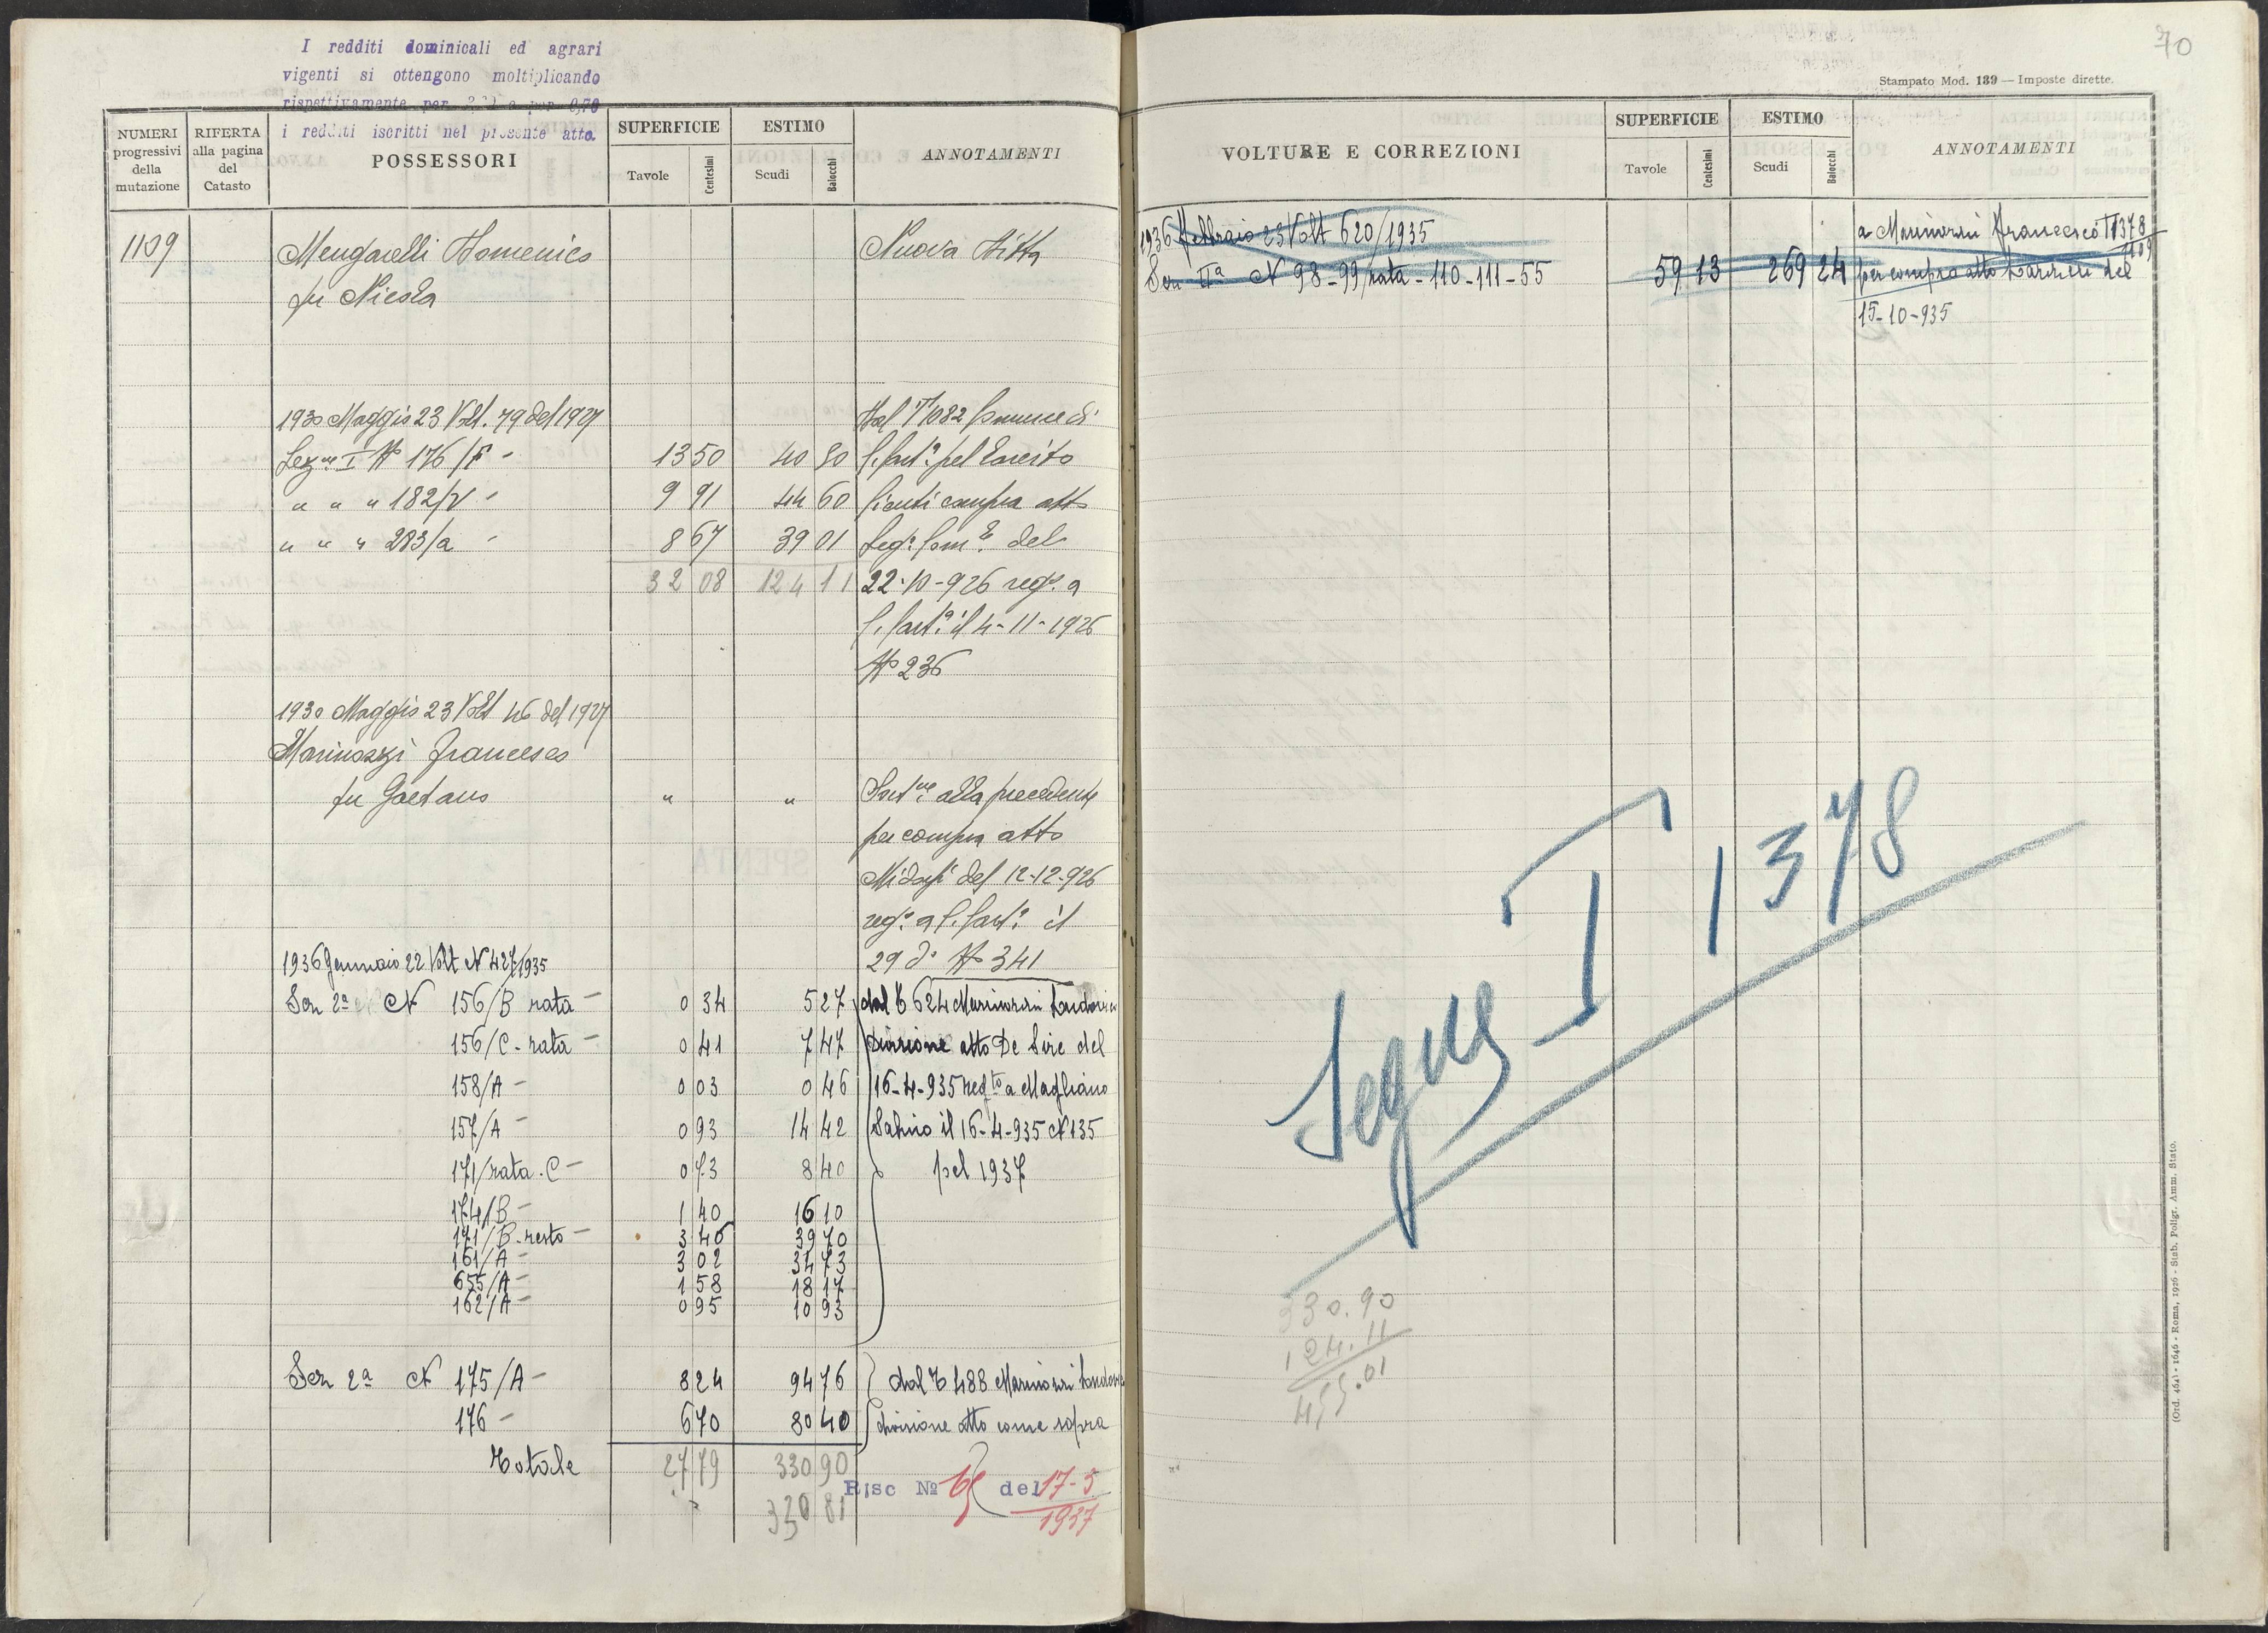 I redditi dominicali ed agrari
vigenti si ottengono moltiplicando
rispettivamente per e per 0,70
i redditi iscritti nel presente atto.
NUMERI progressivi della mutazione
RIFERTA alla pagina del Catasto
POSSESSORI
SUPERFICIE
Tavole Centesimi
ESTIMO
Scudi Baiocchi
ANNOTAMENTI
1109 Mengarelli Domenico Nuova Ditta
fu Nicola
1930 Maggio 23 Volt. 79 del 1927 Dal T 1082 Comune di
Sezne I N 176/F - 13 50 40 50
" " " 182/V - 9 91 44 60 compra atto
" " " 283/a - 8 67 39 01 Segr. Com.le del
32 08 124 11 22-10-926 reg.o a
il 4-11-1926
N 236
1930 Maggio 23 Volt 46 del 1927
Marinozzi Francesco
fu Gaetano " " Sost.ne alla precedente
per compra atto
del 12-12-926
reg.o a il
29 d.o N 341
1936 Gennaio 22 Volt N 427/1935
Sez 2a N 156/B rata - 0 34 5 27 dal T 624 Marinozzi Lodovico
156/C - rata - 0 41 7 47 Divisione atto De Sire del
158/A - 0 03 0 46 16-4-935 regto a Magliano
157/A - 0 93 14 42 Sabino il 16-4-935 N 135
171/rata. C - 0 73 8 40 pel 1937
174/B - 1 40 16 10
171/B - resto - 3 46 39 70
161/A - 3 02 34 73
655/A - 1 58 18 17
162/A - 0 95 10 93
Sez 2a N 175/A - 8 24 94 76 dal T 488 Marinozzi
176 - 6 70 80 40 divisione atto come sopra
Totale 27 79 330 90
320 81
Risc No 65 del 17-5
1937
70
Stampato Mod. 139 — Imposte dirette.
VOLTURE E CORREZIONI
SUPERFICIE
Tavole Centesimi
ESTIMO
Scudi Baiocchi
ANNOTAMENTI
1936 Febbraio 23 Volt 620/1935 a Marinozzi Francesco T 1378
1109
Sez IIa N 98-99/rata-110-111-55 59 13 269 24 per compra atto del
15-10-935
Segue T 1378
330.90
124.11
455.01
(Ord. 464) - 1646 - Roma, 1926 - Stab. Poligr. Amm. Stato.